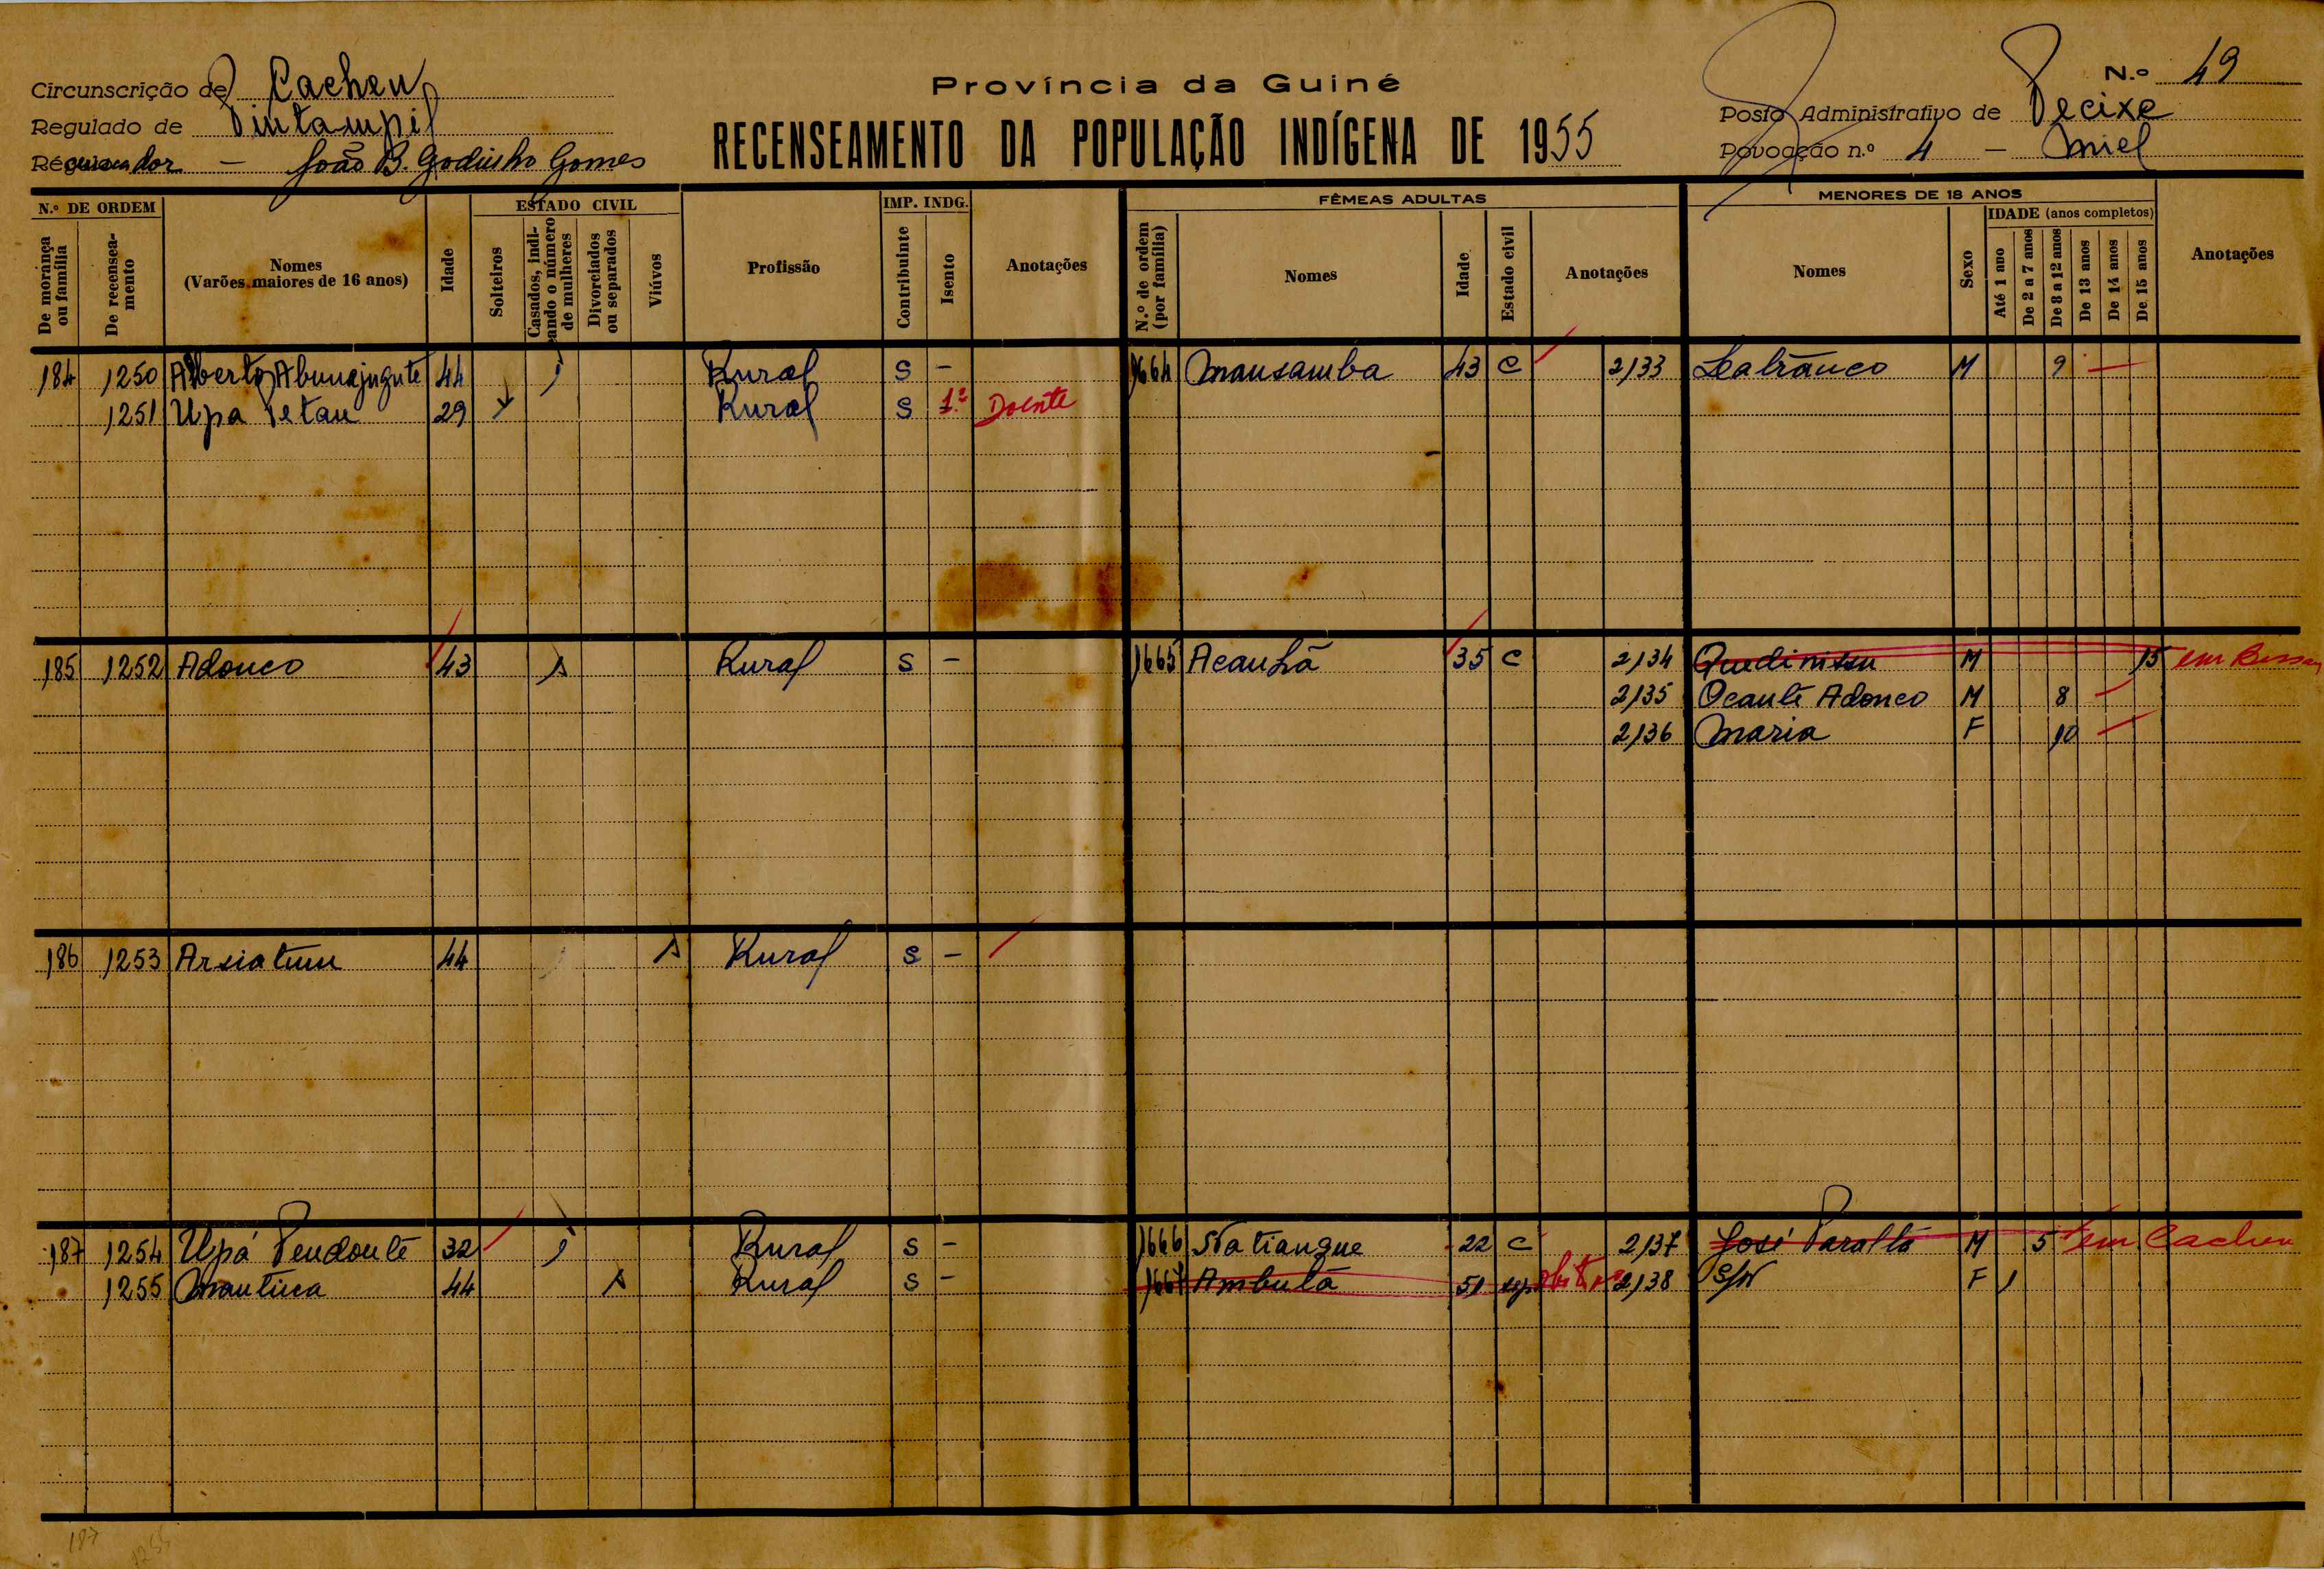 Província da Guiné
N.º 49
Circunscrição de Cacheu
Posto Administrativo de Pecixe
Regulado de Pintampil
RECENSEAMENTO DA POPULAÇÃO INDÍGENA DE 1955
Povoação n.º 4 - Oniel
Recenseador - João B. Godinho Gomes
N.º DE ORDEM
De morança ou família
De recenseamento
Nomes
(Varões maiores de 16 anos)
Idade
ESTADO CIVIL
Solteiros
Casados, indicando o número de mulheres
Divorciados ou separados
Viúvos
Profissão
IMP. INDG.
Contribuinte
Isento
Anotações
FÊMEAS ADULTAS
N.º de ordem (por família)
Nomes
Idade
Estado civil
Anotações
MENORES DE 18 ANOS
Nomes
Sexo
IDADE (anos completos)
Até 1 ano
De 2 a 7 anos
De 8 a 12 anos
De 13 anos
De 14 anos
De 15 anos
Anotações
184 1250 Alberto Abunajugute 44 1 Rural S - 1664 Mansamba 43 C 2133 Leabranco M 9 -
1251 Upa Petau 29 Rural S 1.º Doente
185 1252 Adonco 43 1 Rural S - 1665 Acanhã 35 C 2134 Quedinissu M 15 em Bissau
2135 Ocante Adonco M 8
2136 Maria F 10
186 1253 Arsiatum 44 1 Rural S -
187 1254 Upá Pendonte 32 1 Rural S - 1666 Natiangue 22 C 2137 José Paralta M 5 em Cacheu
1255 Mantina 44 1 Rural S - 1667 Ambulá 51 sep 2138 S/N F 1
187
1255